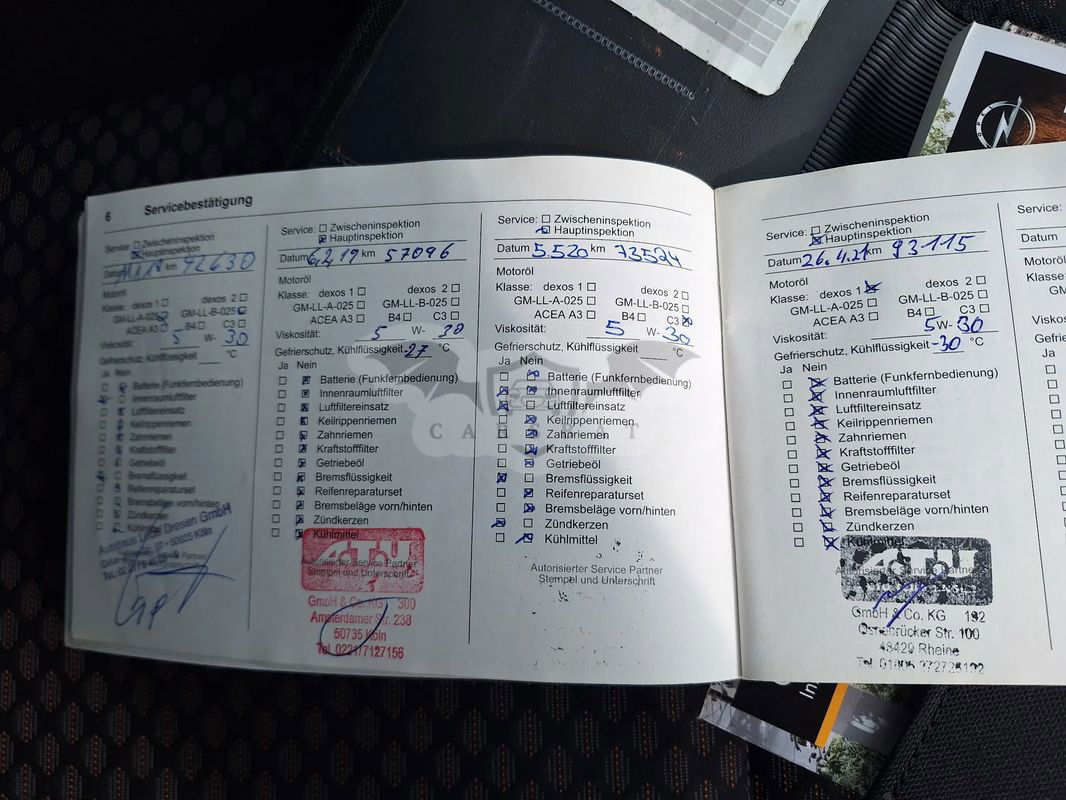 6 Servicebestätigung
Service: Zwischeninspektion
Hauptinspektion
Datum km 42630
Motoröl
Klasse: dexos 1 dexos 2
GM-LL-A-025 GM-LL-B-025
ACEA A3 B4 C3
Viskosität: 5 W- 30
Gefrierschutz, Kühlflüssigkeit °C
Ja Nein
Batterie (Funkfernbedienung)
Innenraumluftfilter
Luftfiltereinsatz
Keilrippenriemen
Zahnriemen
Kraftstofffilter
Getriebeöl
Bremsflüssigkeit
Reifenreparaturset
Bremsbeläge vorn/hinten
Zündkerzen
Kühlmittel
Dresen GmbH
Köln
Service: Zwischeninspektion
Hauptinspektion
Datum 6.2.19 km 57096
Motoröl
Klasse: dexos 1 dexos 2
GM-LL-A-025 GM-LL-B-025
ACEA A3 B4 C3
Viskosität: 5 W- 30
Gefrierschutz, Kühlflüssigkeit -27 °C
Ja Nein
Batterie (Funkfernbedienung)
Innenraumluftfilter
Luftfiltereinsatz
Keilrippenriemen
Zahnriemen
Kraftstofffilter
Getriebeöl
Bremsflüssigkeit
Reifenreparaturset
Bremsbeläge vorn/hinten
Zündkerzen
Kühlmittel
ATU
Autorisierter Service Partner
Stempel und Unterschrift
GmbH & Co. KG 300
Amsterdamer Str. 238
50735 Köln
Tel. 0221/7127156
Service: Zwischeninspektion
Hauptinspektion
Datum 5.5.20 km 73524
Motoröl
Klasse: dexos 1 dexos 2
GM-LL-A-025 GM-LL-B-025
ACEA A3 B4 C3
Viskosität: 5 W- 30
Gefrierschutz, Kühlflüssigkeit °C
Ja Nein
Batterie (Funkfernbedienung)
Innenraumluftfilter
Luftfiltereinsatz
Keilrippenriemen
Zahnriemen
Kraftstofffilter
Getriebeöl
Bremsflüssigkeit
Reifenreparaturset
Bremsbeläge vorn/hinten
Zündkerzen
Kühlmittel
Autorisierter Service Partner
Stempel und Unterschrift
CARSBAT
Service: Zwischeninspektion
Hauptinspektion
Datum 26.4.21 km 93115
Motoröl
Klasse: dexos 1 dexos 2
GM-LL-A-025 GM-LL-B-025
ACEA A3 B4 C3
Viskosität: 5 W- 30
Gefrierschutz, Kühlflüssigkeit -30 °C
Ja Nein
Batterie (Funkfernbedienung)
Innenraumluftfilter
Luftfiltereinsatz
Keilrippenriemen
Zahnriemen
Kraftstofffilter
Getriebeöl
Bremsflüssigkeit
Reifenreparaturset
Bremsbeläge vorn/hinten
Zündkerzen
Kühlmittel
ATU
Autorisierter Service Partner
GmbH & Co. KG 192
Osnabrücker Str. 100
48429 Rheine
Service:
Datum
Ja
OPEL